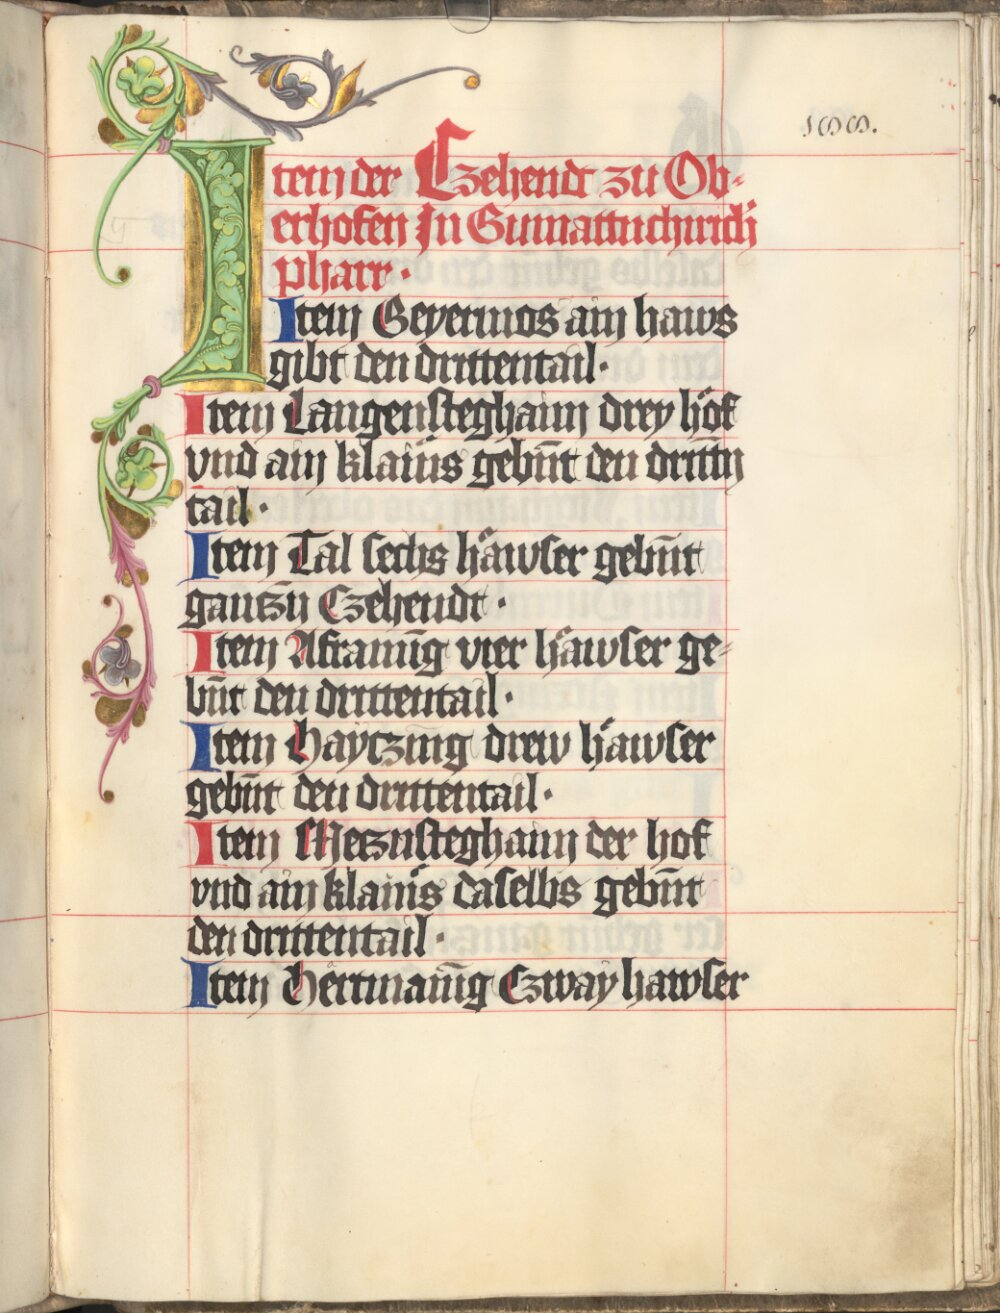 188.
Item der Czehendt zu Ob-
erhofen In Gunnattnchirich
pharr ·
Item Geyermos ain haws
gibt den drittentail ·
Item Langensteghaim drey höf
vnd ain klains gebn̄t den drittn
tail ·
Item Tal sechs häwser gebn̄t
gantzn Czehendt ·
Item Afrann̄g vier häwser ge-
bn̄t den drittentail ·
Item Haytzing drew häwser
gebn̄t den drittentail ·
Item Metznsteghaim der hof
vnd ain klains daselbs gebn̄t
den drittentail ·
Item Hertmann̄g Czway hawser